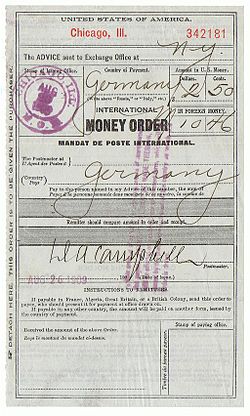 UNITED STATES OF AMERICA.
Chicago, Ill.
342181
The ADVICE sent to Exchange Office at N.Y.
Name of Issuing Office.
Country of Payment.
Amount in U.S. Money.
Germany
Dollars
Cents
2 50
(Write above "Russia," or "Italy," etc.)
IN FOREIGN MONEY
INTERNATIONAL
10 46
MONEY ORDER
MANDAT DE POSTE INTERNATIONAL.
The Postmaster at
(L'Agent des Postes à)
(Country)
(Pays)
Germany
Pay to the person named in my Advice of this number, the sum of
Remitter should compare amount in order and receipt.
D A Campbell
Postmaster.
AUG 26 1909
190
(Date of Issue.)
INSTRUCTIONS TO REMITTERS.
If payable in France, Algeria, Great Britain, or a British Colony, send this order to
payee, who should present it for payment at office drawn on.
If payable in any other country, the amount will be paid on another form, issued by
the country of payment.
Received the amount of the above Order.
Reçu le montant du mandat ci-dessus.
Stamp of paying office.
DETACH HERE. THIS ORDER IS TO BE GIVEN THE PURCHASER.